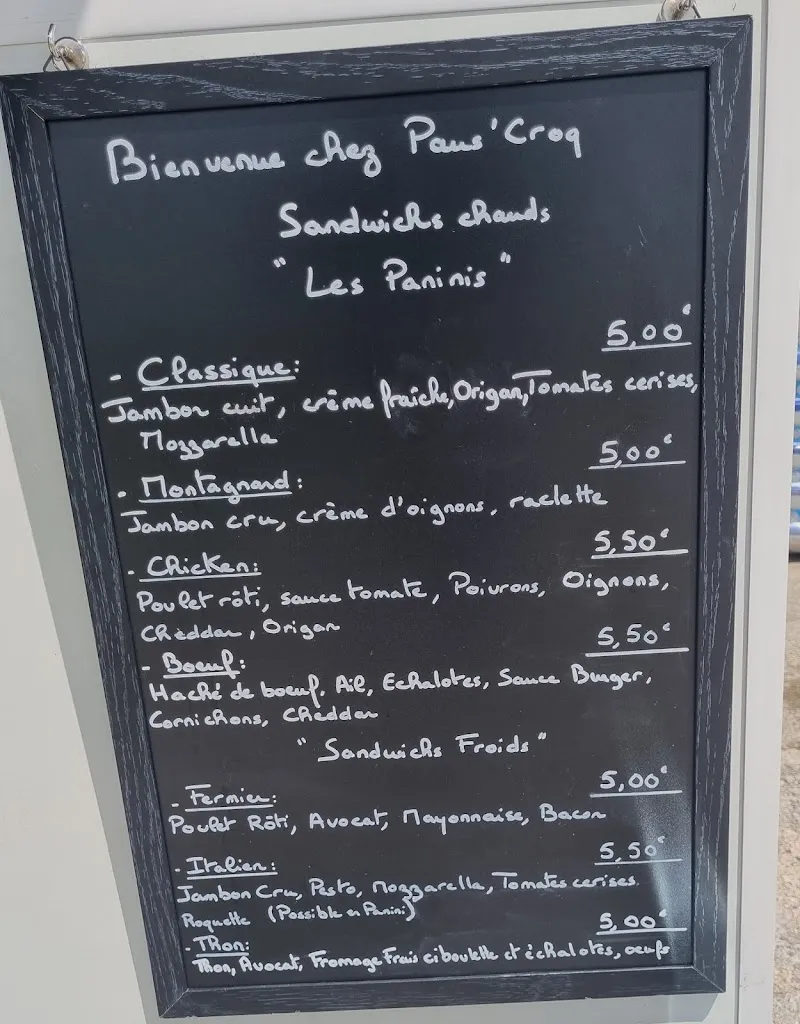 Bienvenue chez Paus'Croq
Sandwichs chauds
" Les Paninis "
5,00€
- Classique:
Jambon cuit, crème fraiche, Origan, Tomates cerises,
Mozzarella
5,00€
- Montagnard:
Jambon cru, crème d'oignons, raclette
5,50€
- Chicken:
Poulet rôti, sauce tomate, Poivrons, Oignons,
Cheddar, Origan
5,50€
- Boeuf:
Haché de boeuf, Ail, Echalotes, Sauce Burger,
Cornichons, Cheddar
" Sandwichs Froids "
5,00€
- Fermier:
Poulet Rôti, Avocat, Mayonnaise, Bacon
5,50€
- Italien:
Jambon Cru, Pesto, Mozzarella, Tomates cerises.
Roquette (Possible en Panini)
5,00€
- Thon:
Thon, Avocat, Fromage Frais ciboulette et échalotes, oeufs